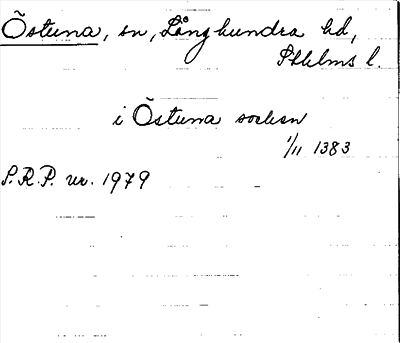 Östuna, sn, Långhundra hd,
Sthlms l.
i Östuna sockn
1/11 1383
S.R.P. nr. 1979